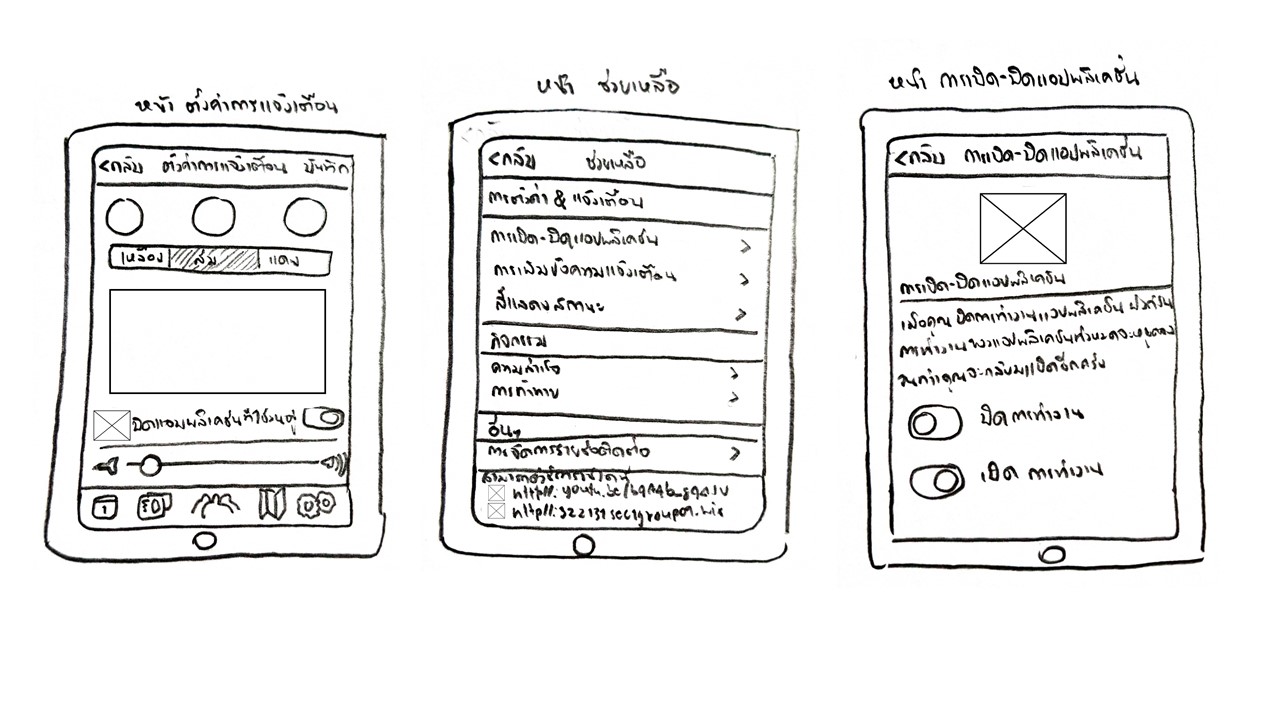 หน้า ตั้งค่าการแจ้งเตือน
<กลับ ตั้งค่าการแจ้งเตือน บันทึก
เหลือง ส้ม แดง
ปิดแอปพลิเคชันที่ใช้งานอยู่
1
หน้า ช่วยเหลือ
<กลับ ช่วยเหลือ
การตั้งค่า & แจ้งเตือน
การเปิด-ปิดแอปพลิเคชัน >
การเพิ่มข้อความแจ้งเตือน >
สีแสดงสถานะ >
กิจกรรม
ความสำเร็จ >
การท้าทาย >
อื่นๆ
การจัดการรายชื่อติดต่อ >
หน้า การเปิด-ปิดแอปพลิเคชัน
<กลับ การเปิด-ปิดแอปพลิเคชัน
การเปิด-ปิดแอปพลิเคชัน
เมื่อคุณ ปิดการทำงานแอปพลิเคชัน ฟังก์ชัน
การทำงานของแอปพลิเคชันทั้งหมดจะหยุดลง
จนกว่าคุณจะกลับมาเปิดอีกครั้ง
ปิด การทำงาน
เปิด การทำงาน